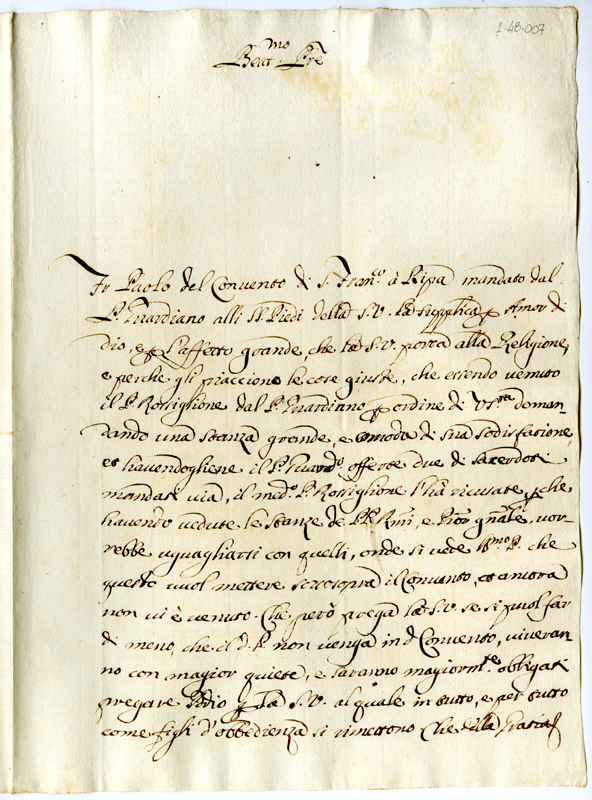 2-48-007
Beat.mo Pre
Fr Paolo del Convento di S. Fran.co à Ripa mandato dal
P. Guardiano alli SS. Piedi della S.V. la supplica p Amor di
dio, e p l'affetto grande, che la S.V. porta alla Religione,
e perche gli piaccione le cose giuste, che essendo venuto
il P. Rossiglione dal P. Guardiano p ordine di V. doman-
dando una stanza grande, e comoda di sua sodisfatione
et havendogliene il P. Guardo. offerte due di sacerdoti
mandati via, il med.o P. Rossiglione l'hà ricusate, p che
havendo vedute le stanze de PP. Rmi, e gnale, vor-
rebbe uguagliarsi con quelli, onde si vede B.mo P. che
questo vuol mettere sottosopra il Convento, et ancora
non vi è venuto. Che però prega la S.V. se si puol far
di meno, che il d. P. non venga in d. Convento, viveran-
no con magior quiete, e saranno magiorm.te obligati
pregare Iddio p la S.V. al quale in tutto, e per tutto
come figli d'obbedienza si rimettono Che della Gratia